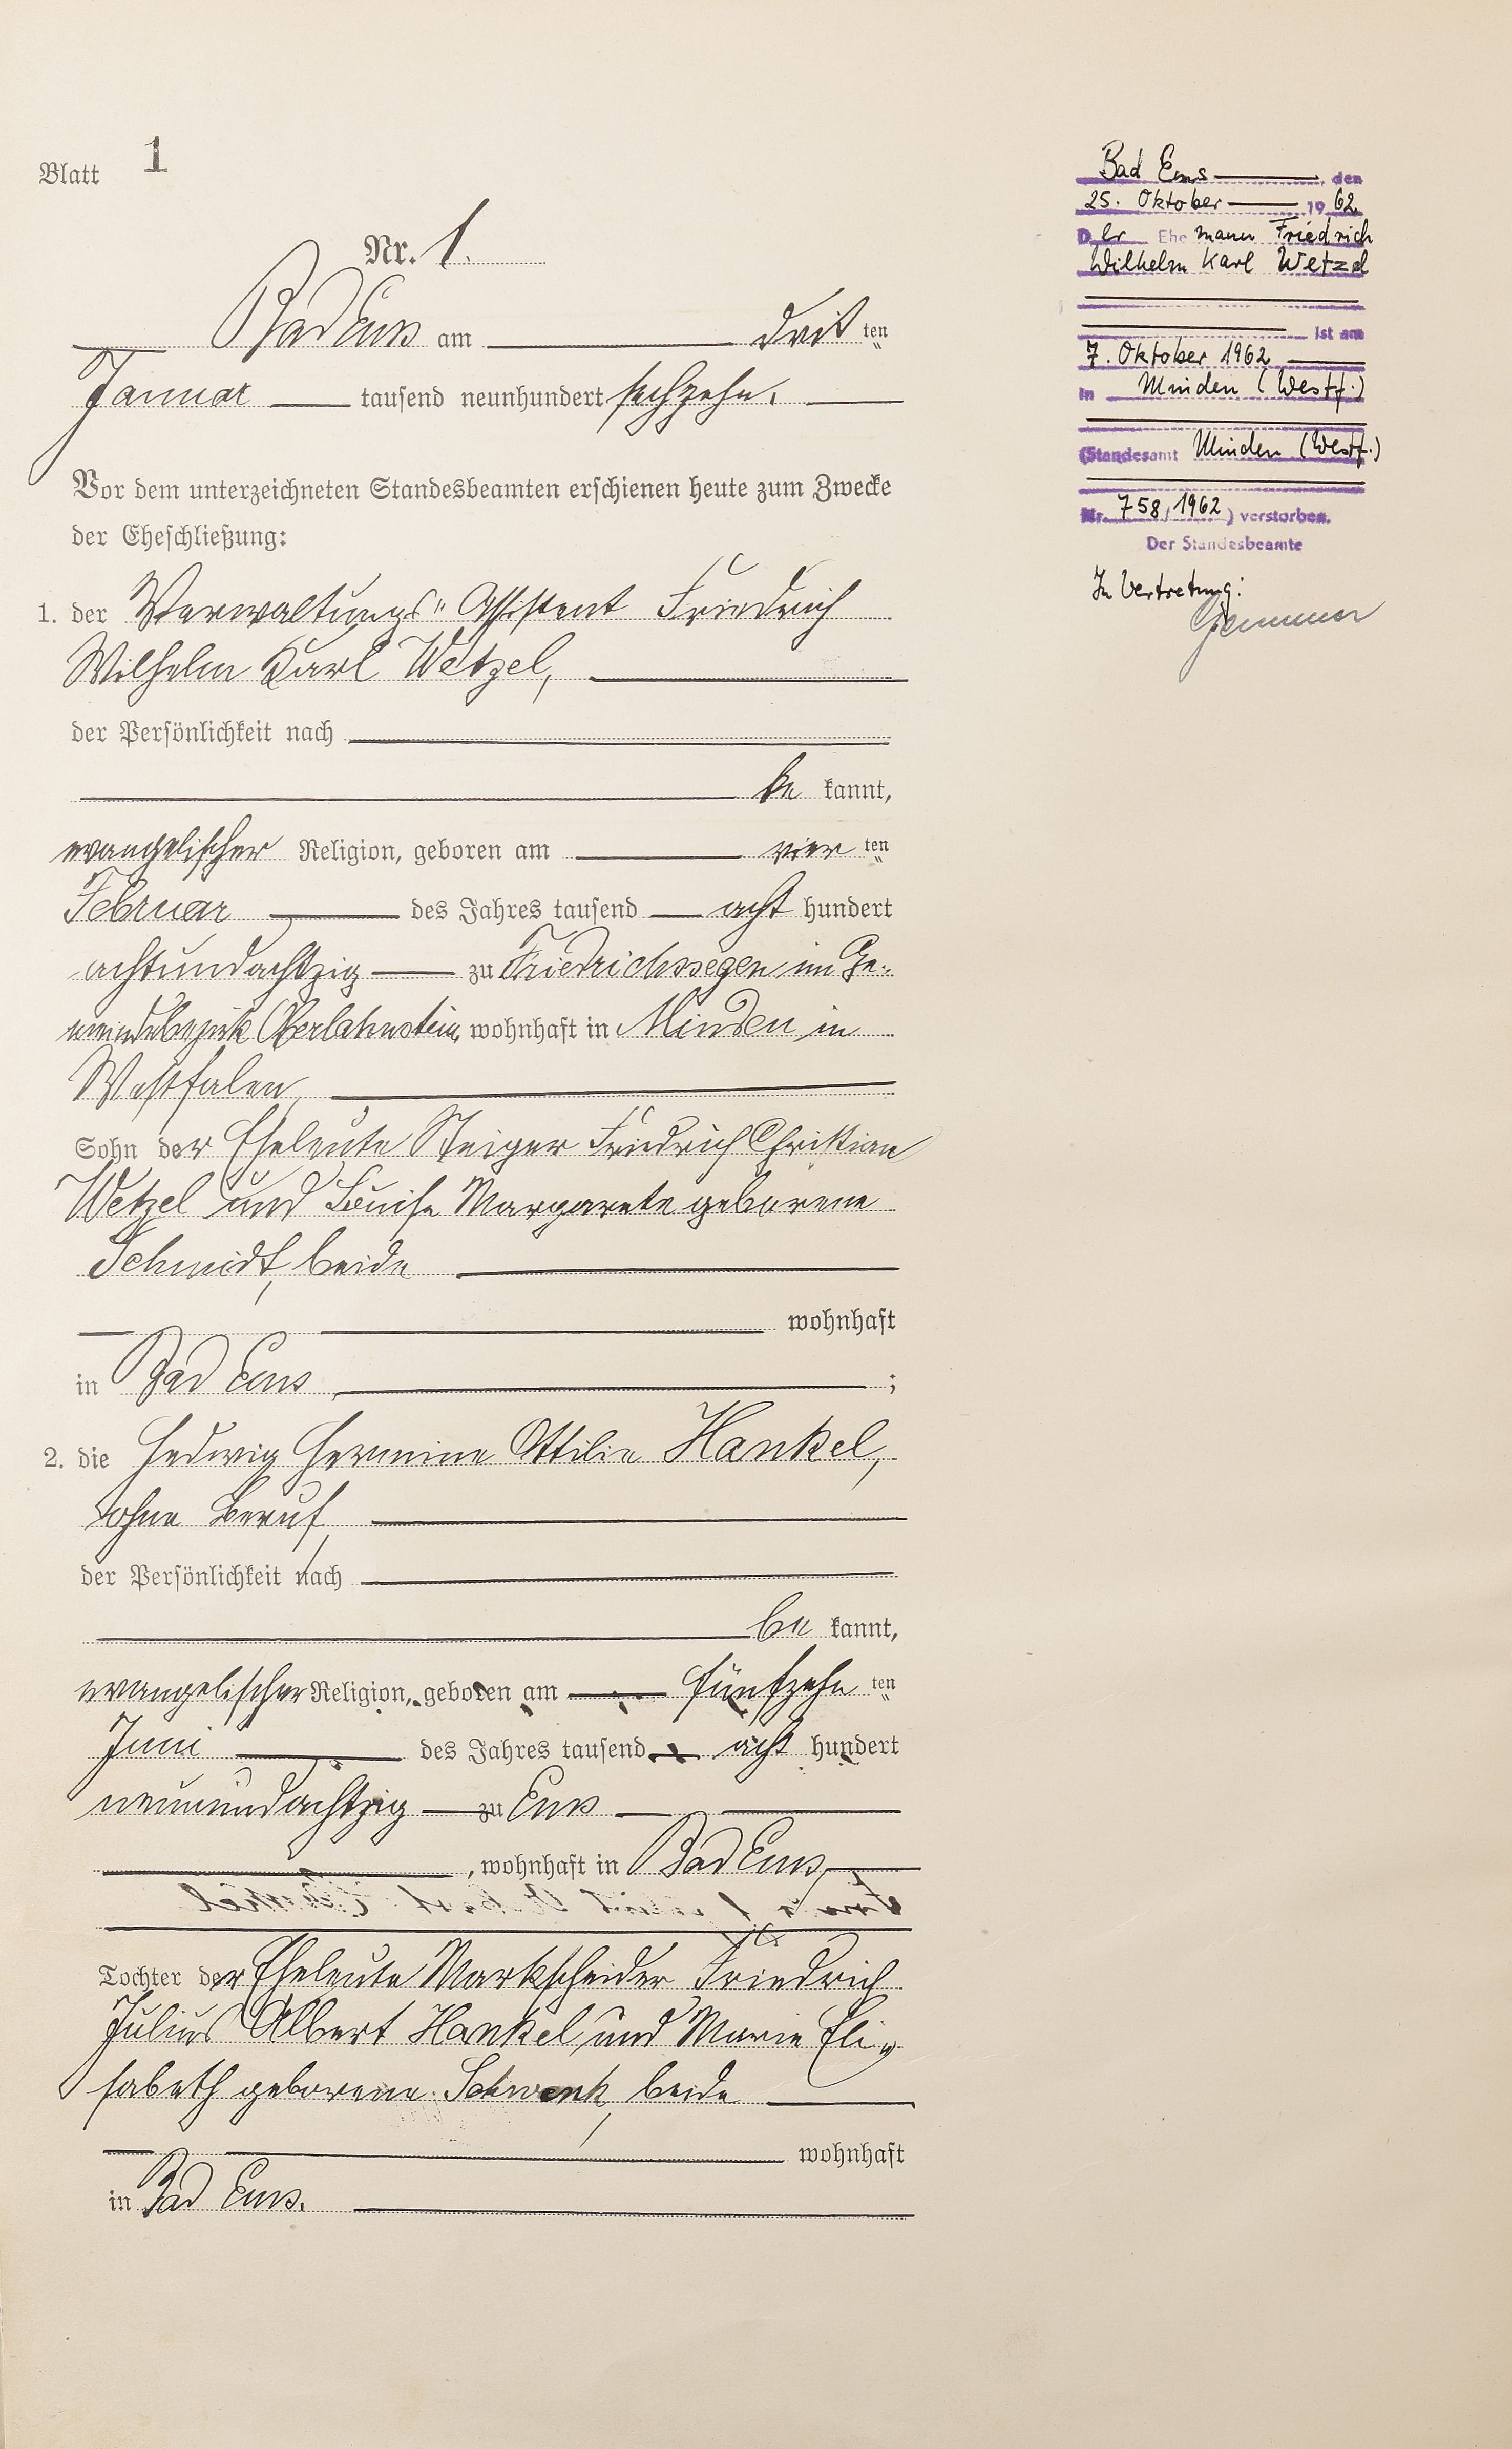 Blatt 1
Nr. 1.
Bad Ems am drit ten
Januar tausend neunhundert sechzehn.
Vor dem unterzeichneten Standesbeamten erschienen heute zum Zwecke
der Eheschließung:
1. der Verwaltungs-Assistent Friedrich
Wilhelm Karl Wetzel,
der Persönlichkeit nach
be kannt,
evangelischer Religion, geboren am vier ten
Februar des Jahres tausend acht hundert
achtundachtzig zu Friedrichssegen im Ge-
meindebezirk Oberlahnstein, wohnhaft in Minden in
Westfalen,
Sohn der Eheleute Steiger Friedrich Christian
Wetzel und Louise Margarete geborene
Schmidt, beide
wohnhaft
in Bad Ems ;
2. die Hedwig Hermine Ottilie Hankel,
ohne Beruf,
der Persönlichkeit nach
be kannt,
evangelischer Religion, geboren am fünfzehn ten
Juni des Jahres tausend acht hundert
neunundachtzig zu Ems
, wohnhaft in Bad Ems,
Tochter der Eheleute Markscheider Friedrich
Julius Albert Hankel und Marie Eli-
sabeth geborene Schwenk, beide
wohnhaft
in Bad Ems.
Bad Ems, den
25. Oktober 1962
Der Ehemann Friedrich
Wilhelm Karl Wetzel
ist am
7. Oktober 1962
in Minden (Westf.)
(Standesamt Minden (Westf.)
Nr. 758/1962) verstorben.
Der Standesbeamte
In Vertretung: